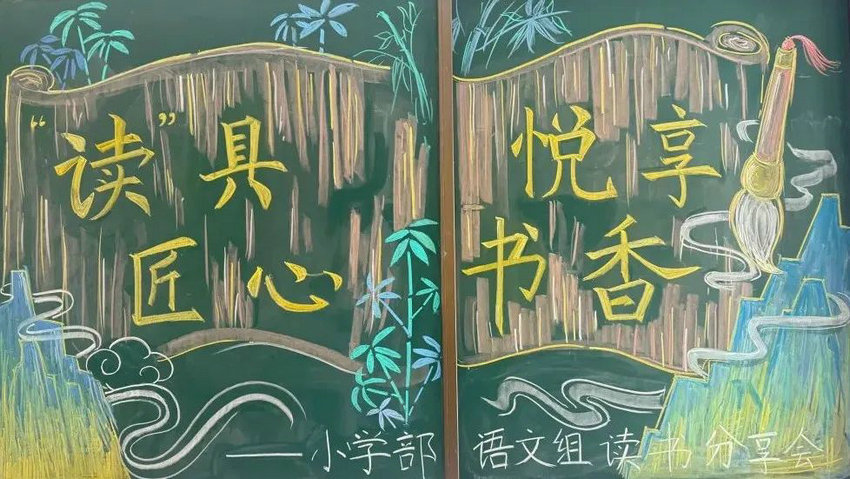 “读”具
匠心
悦享
书香
——小学部 语文组读书分享会